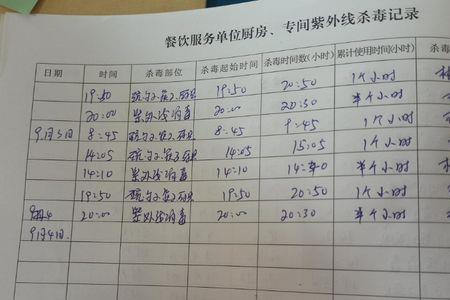 餐饮服务单位厨房、专间紫外线杀毒记录
日期 时间 杀毒部位 杀毒起始时间 杀毒时间数(小时) 累计使用时间(小时) 杀毒
19:50 19:50 20:50 1个小时
20:00 紫外线消毒 20:00 20:30 半个小时
9月3日 8:45 8:45 9:45 1个小时
14:05 14:05 15:05 1个小时
14:10 紫外线消毒 14:10 半个小时
19:50 19:50 20:50 1个小时
20:00 紫外线消毒 20:00 20:30 半个小时
9月4日